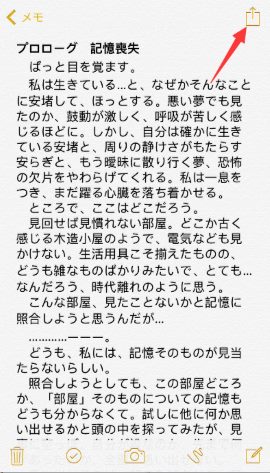 メモ
プロローグ　記憶喪失
　ぱっと目を覚ます。
　私は生きている…と、なぜかそんなこと
に安堵して、ほっとする。悪い夢でも見
たのか、鼓動が激しく、呼吸が苦しく感
じるほどに。しかし、自分は確かに生き
ている安堵と、周りの静けさがもたらす
安らぎと、もう曖昧に散り行く夢、恐怖
の欠片をやわらげてくれる。私は一息を
つき、まだ躍る心臓を落ち着かせる。
　ところで、ここはどこだろう。
　見回せば見慣れない部屋。どこか古く
感じる木造小屋のようで、電気なども見
かけない。生活用具こそ揃えたものの、
どうも雑なものばかりみたいで、とても…
なんだろう、時代離れのように思う。
　こんな部屋、見たことないかと記憶に
照合しようと思うんだが…
　…………ーーー。
　どうも、私には、記憶そのものが見当
たらないらしい。
　照合しようとしても、この部屋どころ
か、「部屋」そのものについての記憶も
どうも分からなくて。試しに他に何か思
い出せるかと頭の中を探ってみたが、見